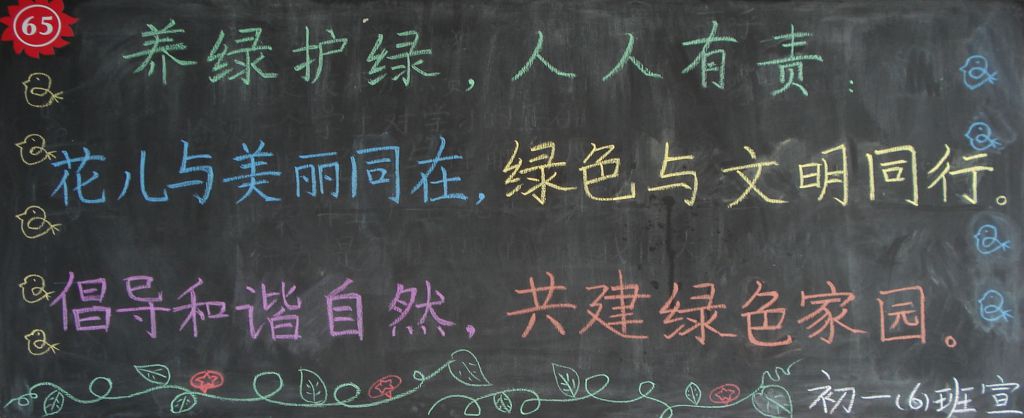 65
养绿护绿，人人有责：
花儿与美丽同在，绿色与文明同行。
倡导和谐自然，共建绿色家园。
初一(6)班宣